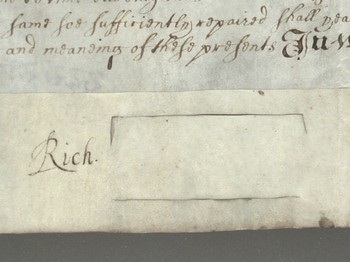 same soe sufficiently repaired shall yea
and meaneing of these presents In w
Rich.